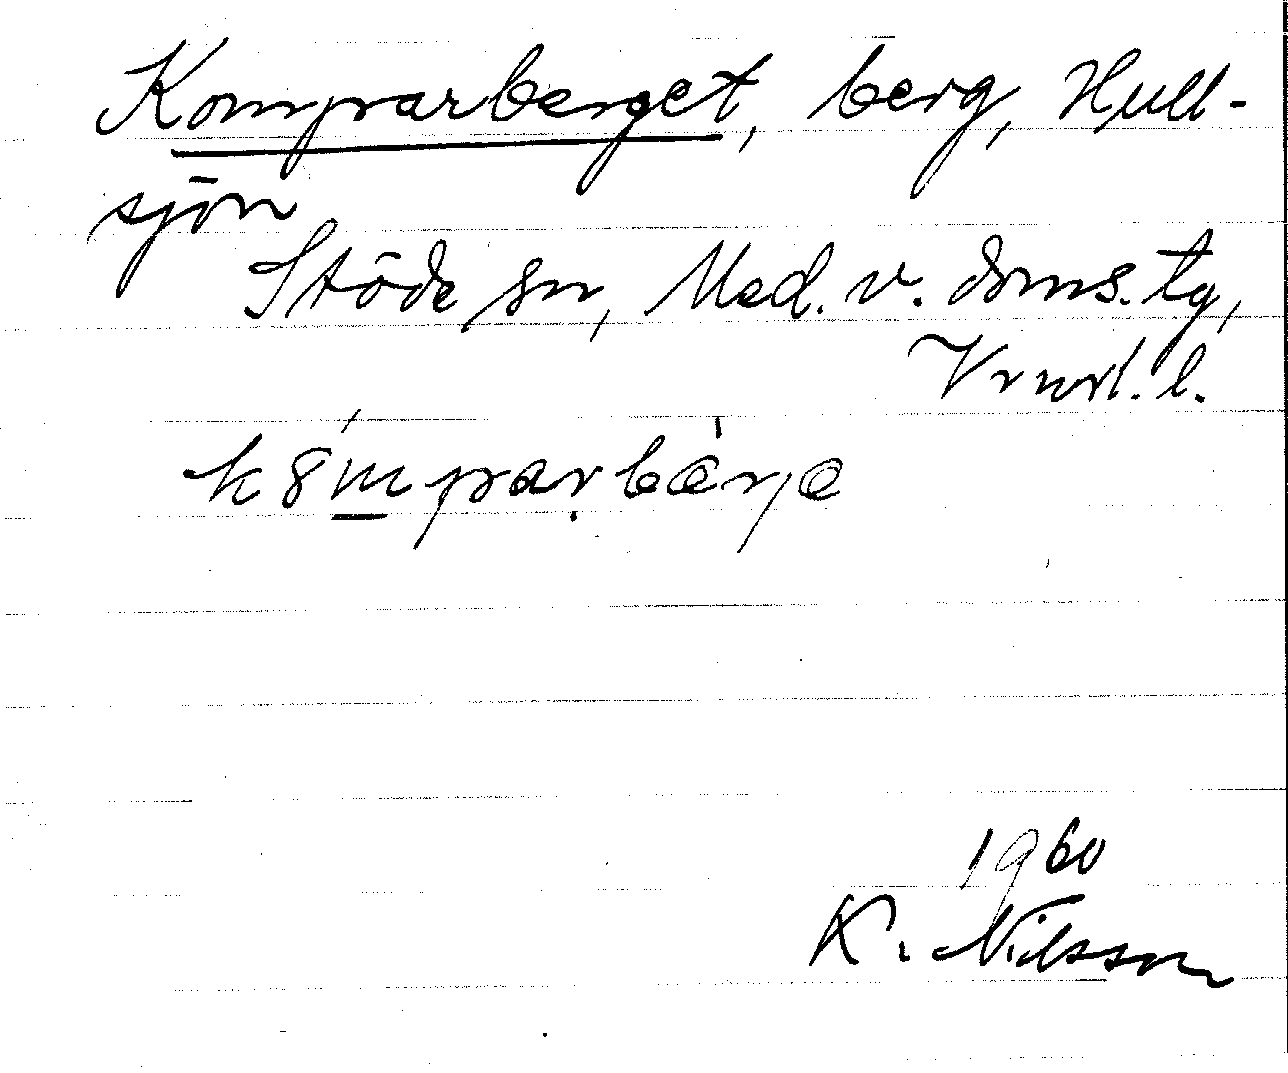 Komparberget, berg, Hull-
sjön
Stöde sn, Med. v. doms. tg,
Vnorl. l.
k8mparbærjə
1960
K. Nilsson